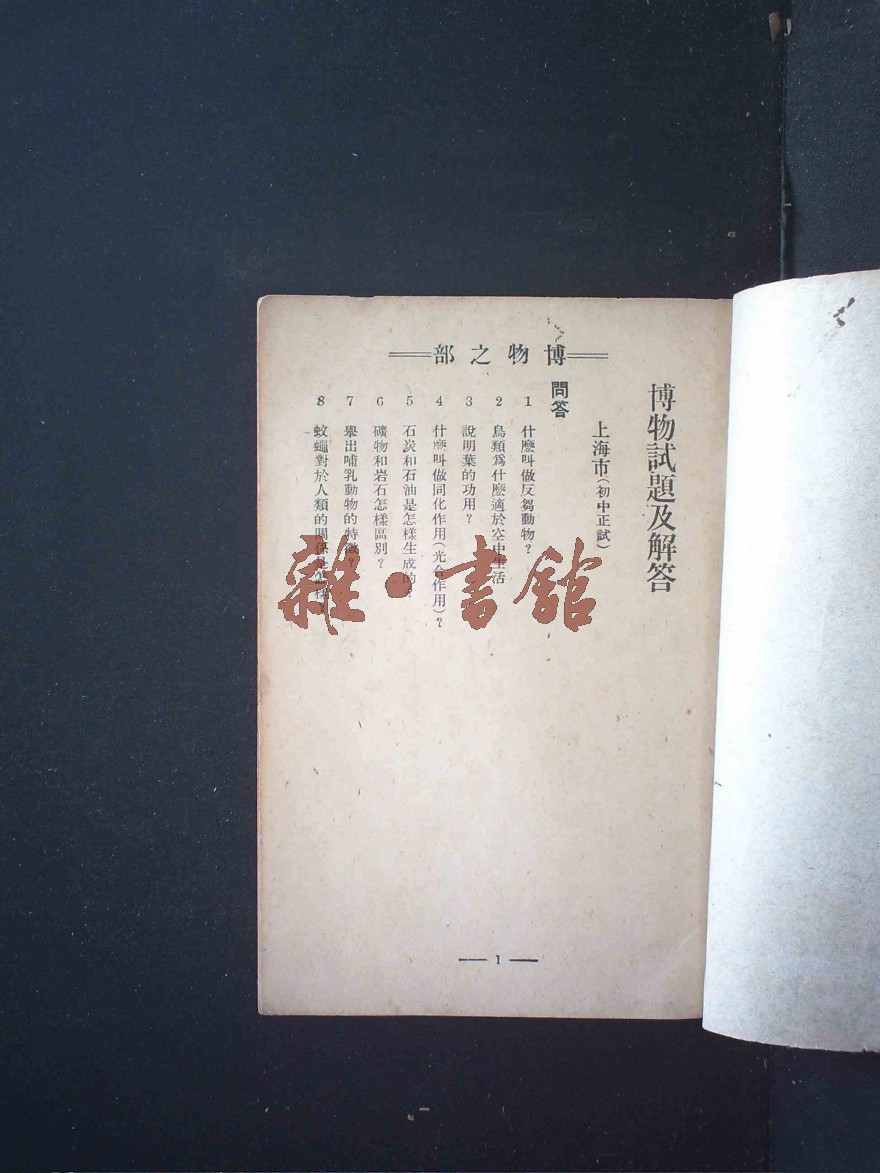 博物之部
博物試題及解答
上海市(初中正試)
問答
1 什麼叫做反芻動物?
2 鳥類爲什麼適於空中生活
3 說明葉的功用?
4 什麼叫做同化作用(光合作用)?
5 石炭和石油是怎樣生成的?
6 礦物和岩石怎樣區別?
7 舉出哺乳動物的特徵?
8 蚊蠅對於人類的關係是怎樣
1
雜·書館